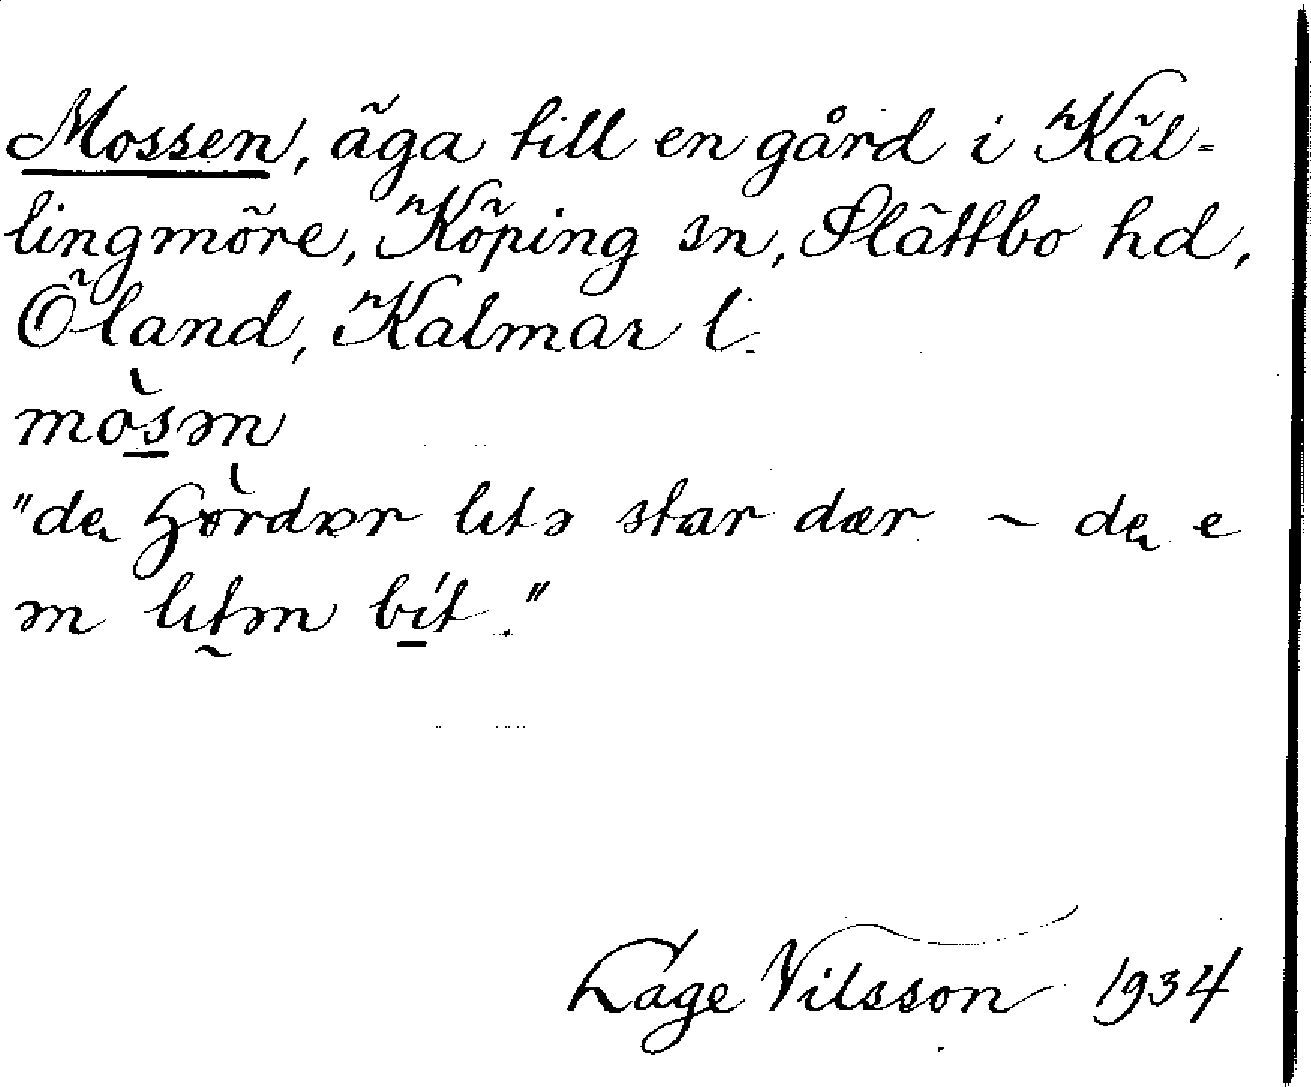 Mossen, äga till en gård i Käl-
lingmöre, Köping sn, Slättbo hd,
Öland, Kalmar l.
mòsən
"de hòrdɐr litə star dær – de e
ən litən bít."
Lage Nilsson 1934